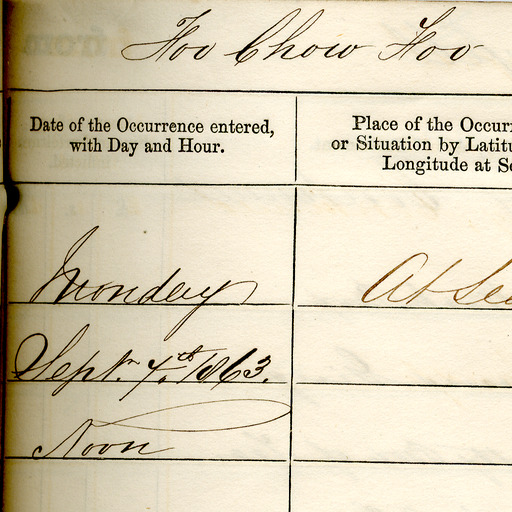 Foo Chow Foo
Date of the Occurrence entered,
with Day and Hour.
Place of the Occurr
or Situation by Latitu
Longitude at Se
Monday
At Sea
Septr. 7th. 1863.
Noon